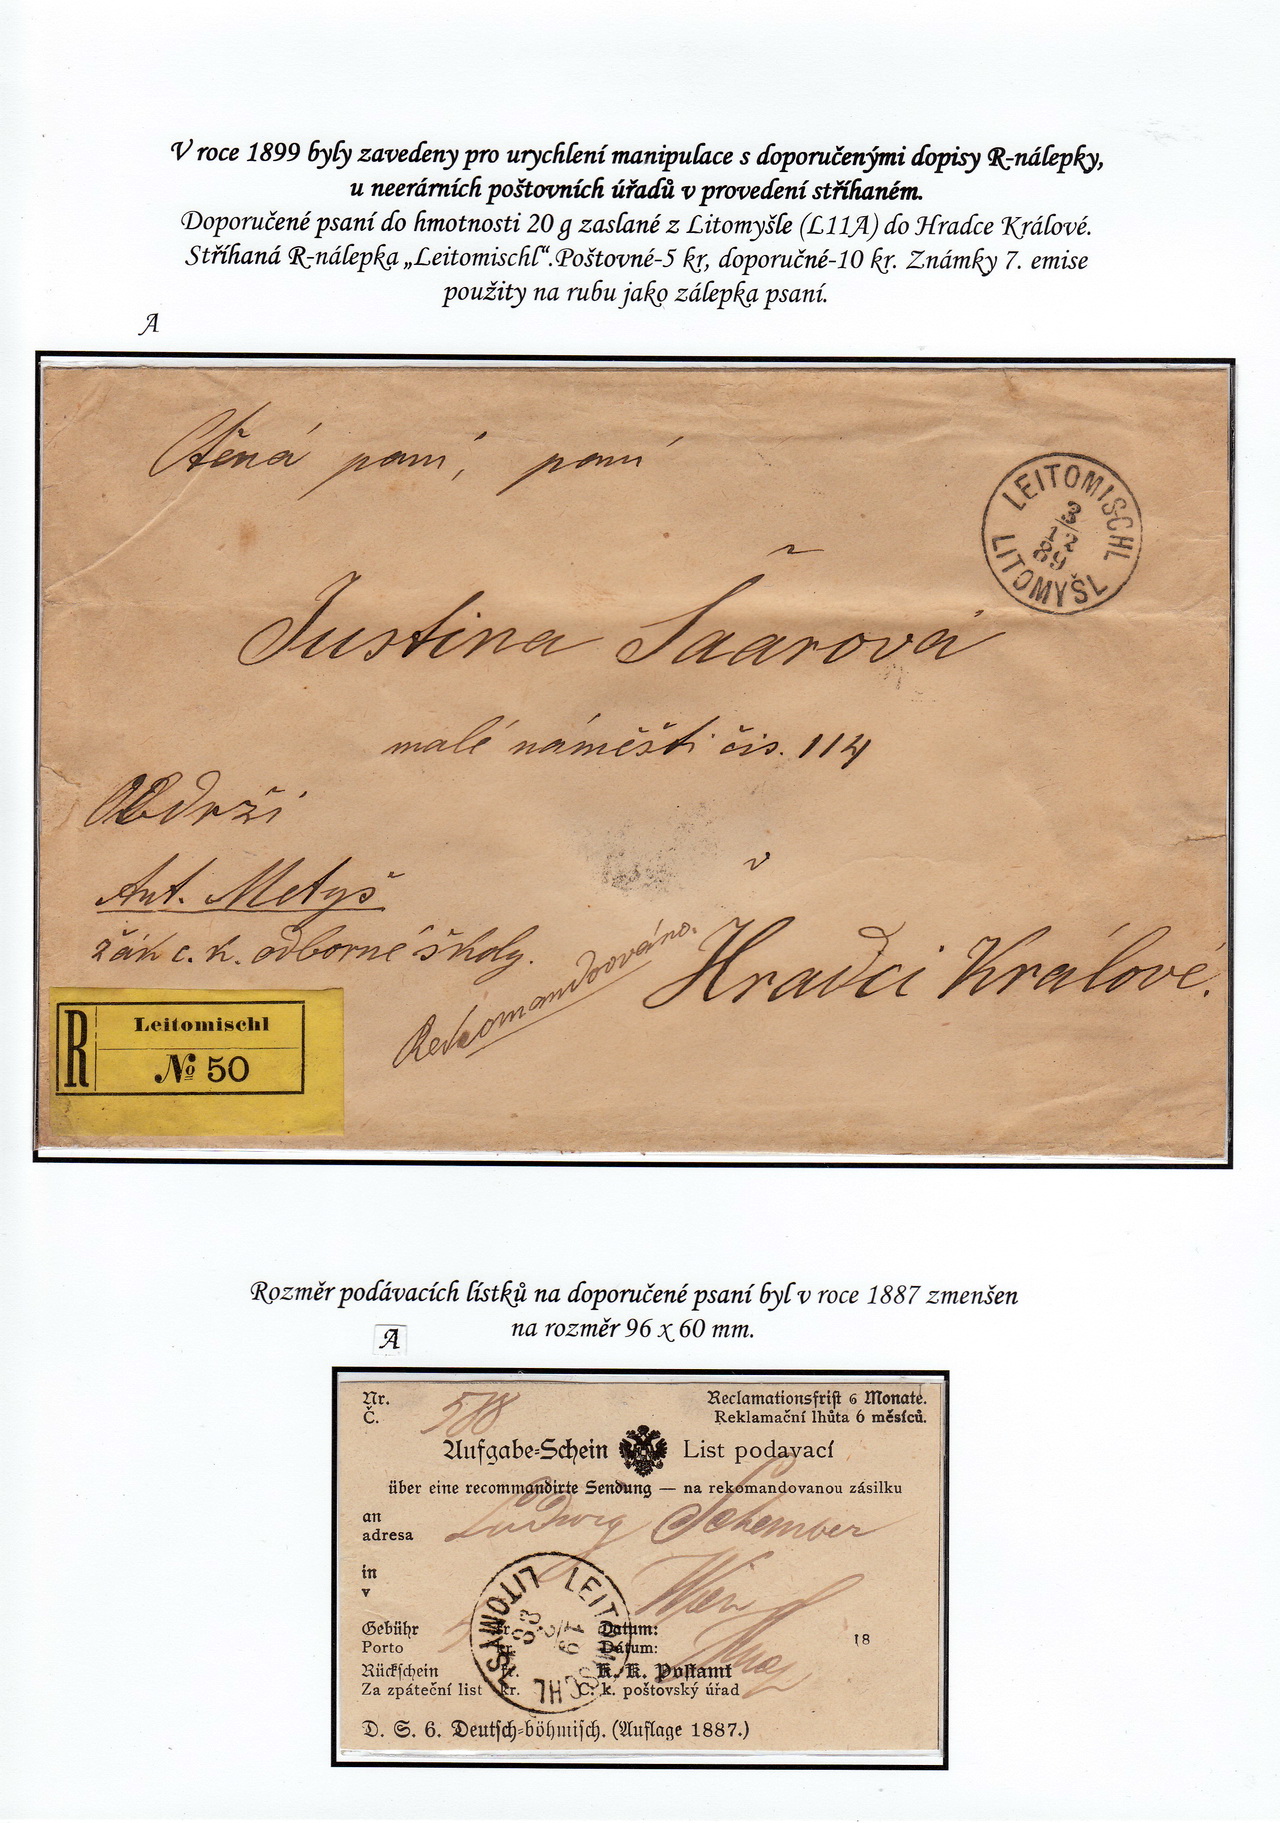 V roce 1899 byly zavedeny pro urychlení manipulace s doporučenými dopisy R-nálepky,
u neerárních poštovních úřadů v provedení stříhaném.
Doporučené psaní do hmotnosti 20 g zaslané z Litomyšle (L11A) do Hradce Králové.
Stříhaná R-nálepka „Leitomischl“.Poštovné-5 kr, doporučné-10 kr. Známky 7. emise
použity na rubu jako zálepka psaní.
A
Ctěná paní, paní
LEITOMISCHL
3/12
89
LITOMYŠL
Justina Šaarová
malé náměstí čís. 114
Obdrží
Ant. Metyš
žák c. k. odborné školy.
v
Rekomandováno.
Hradci Králové.
R
Leitomischl
№ 50
Rozměr podávacích lístků na doporučené psaní byl v roce 1887 zmenšen
na rozměr 96 x 60 mm.
A
Nr. Reclamationsfrist 6 Monate.
Č. 588 Reklamační lhůta 6 měsíců.
Aufgabe-Schein List podavací
über eine recommandirte Sendung — na rekomandovanou zásilku
an
adresa Ludwig Schember
in
v Wien
LEITOMISCHL
LITOMYŠL
Gebühr kr. Datum:
Porto kr. Dátum: 18
Rückschein kr. K. K. Postamt
Za zpáteční list kr. C. k. poštovský úřad
D. S. 6. Deutsch-böhmisch. (Auflage 1887.)